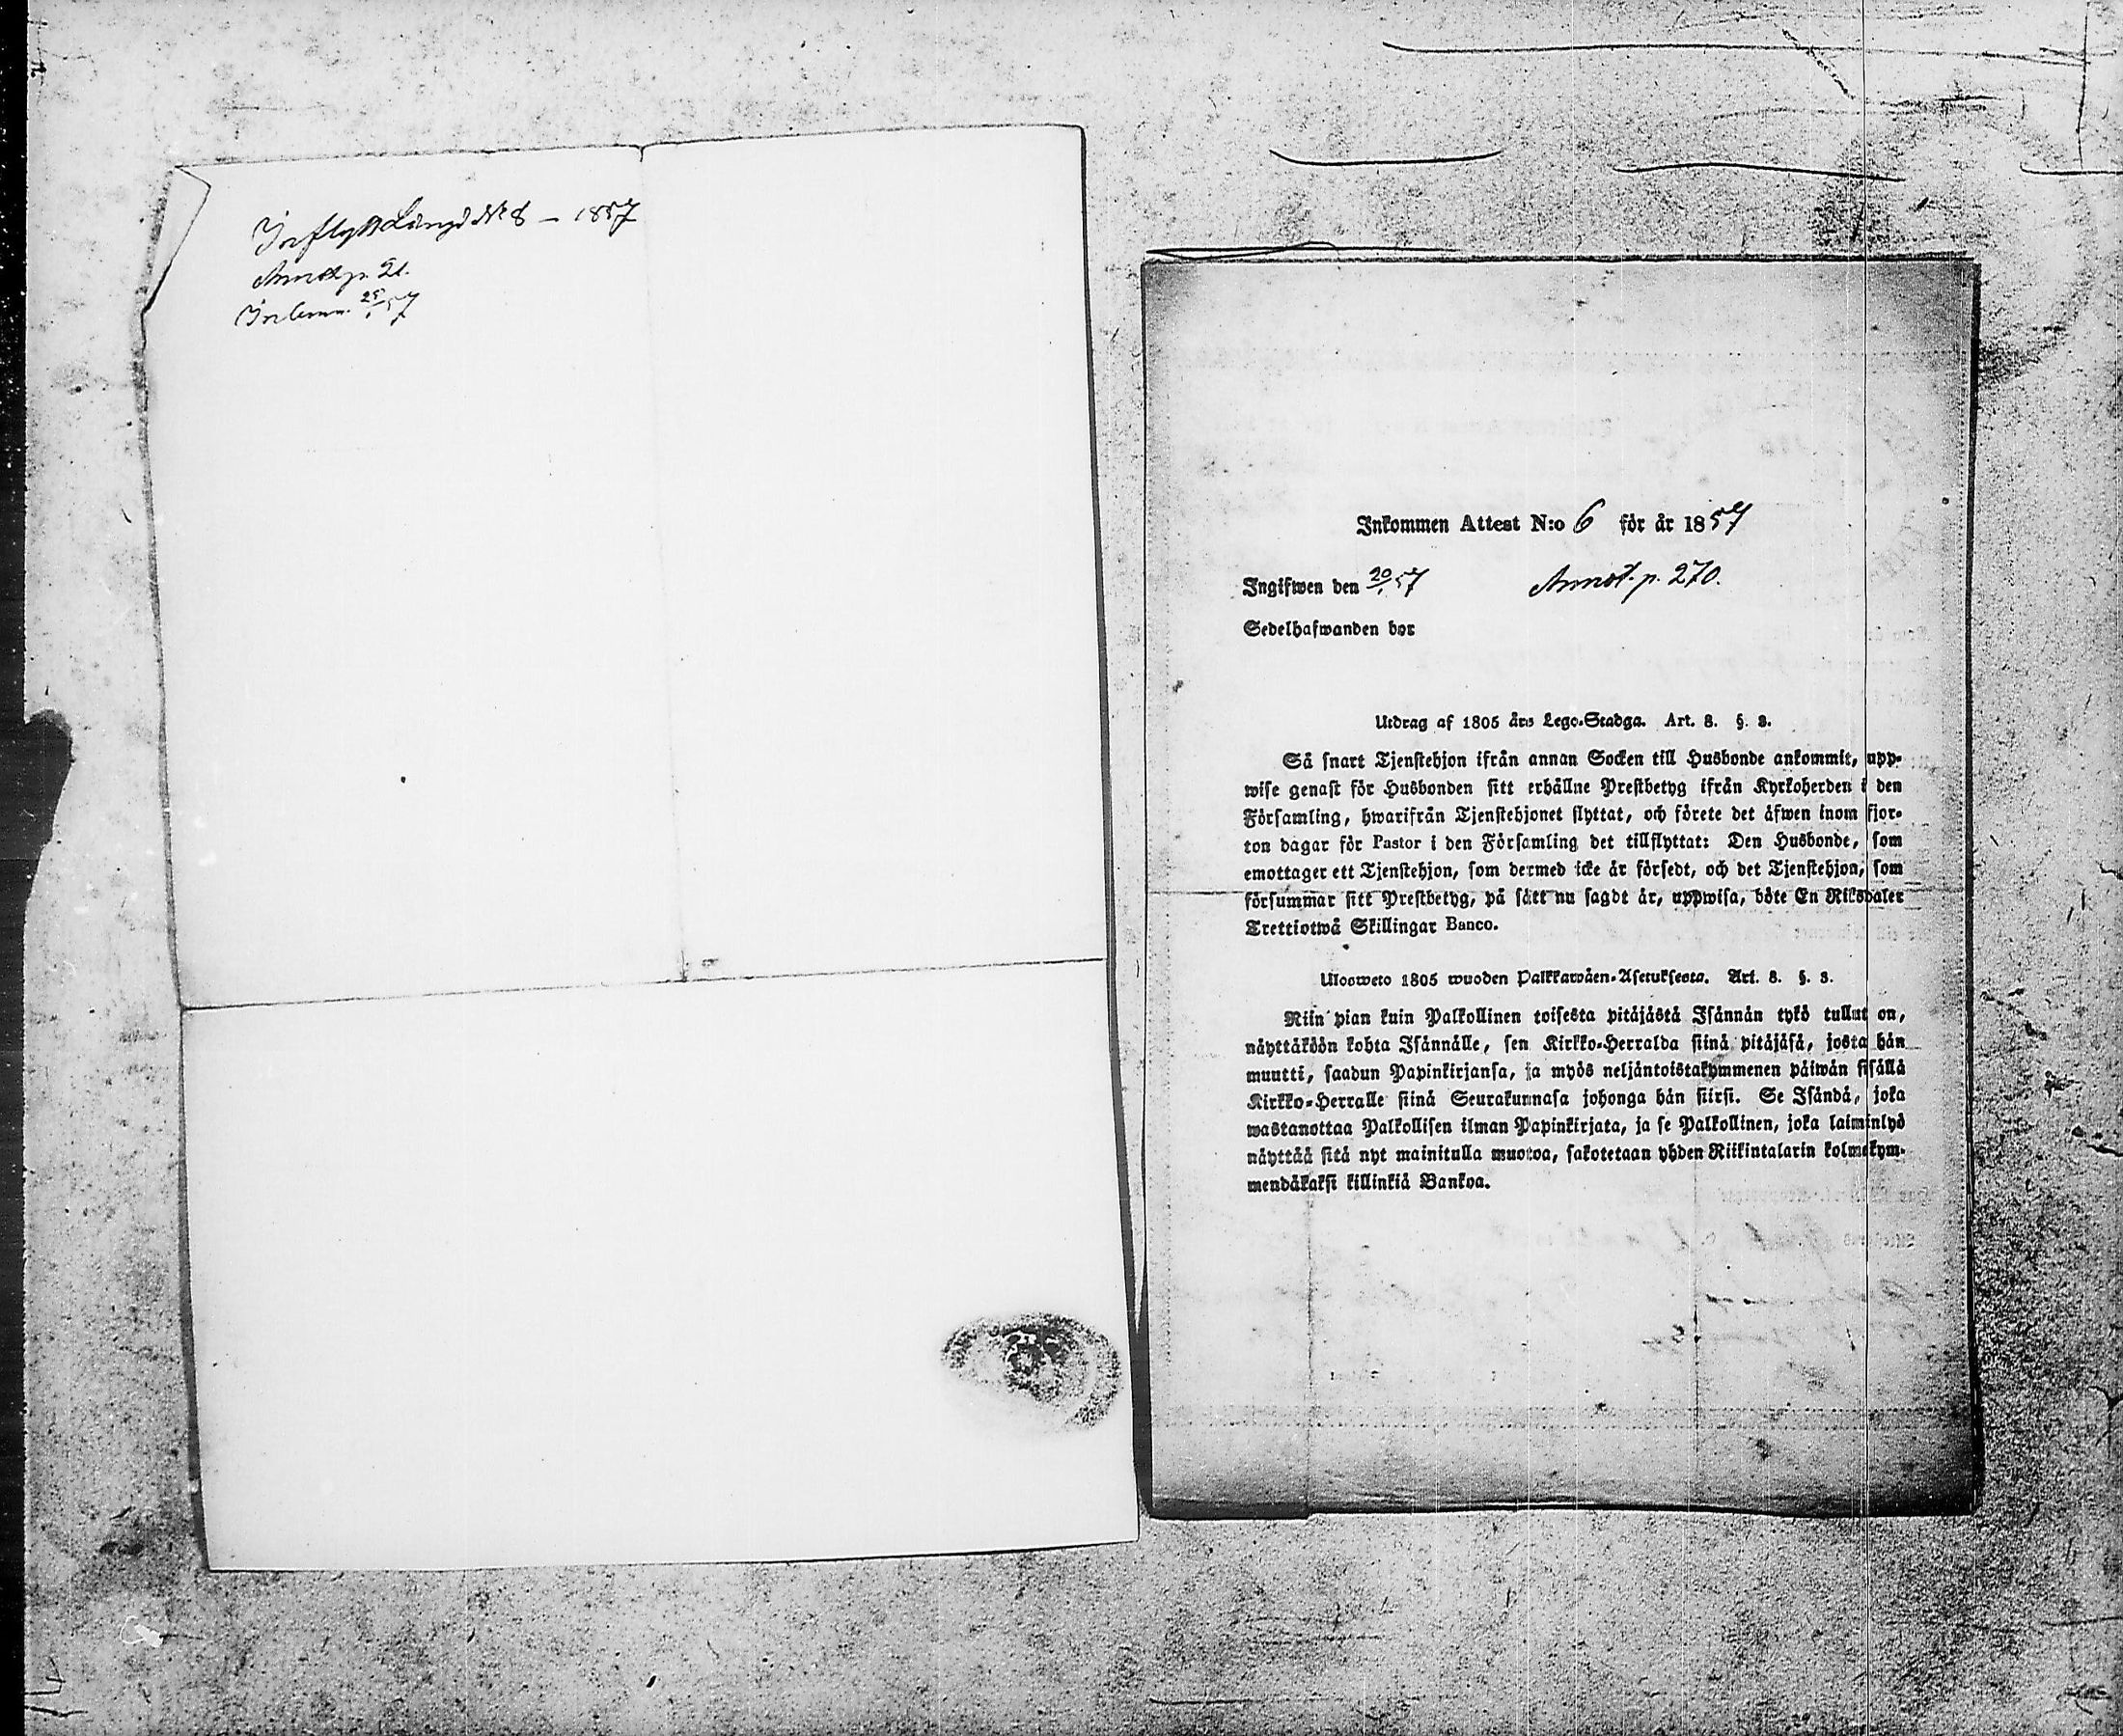 Inflyttn Längd No 8 – 1857
Annot. p. 21.
Inlemn. 25/1 57
Inkommen Attest N:o 6 för år 1857
Ingifwen den 20/1 57 Annot. p. 270.
Sedelhafwanden bor
Utdrag af 1805 års Lego-Stadga. Art. 8. §. 3.
Så snart Tjenstehjon ifrån annan Socken till Husbonde ankommit, upp-
wise genast för Husbonden sitt erhållne Prestbetyg ifrån Kyrkoherden i den
Församling, hwarifrån Tjenstehjonet flyttat, och förete det äfwen inom fjor-
ton dagar för Pastor i den Församling det tillflyttat: Den Husbonde, som
emottager ett Tjenstehjon, som dermed icke är försedt, och det Tjenstehjon, som
försummar sitt Prestbetyg, på sätt nu sagdt är, uppwisa, böte En Riksdaler
Trettiotwå Skillingar Banco.
Ulosweto 1805 wuoden Palkkawäen-Asetuksesta. Art. 8. §. 3.
Niin pian kuin Palkollinen toisesta pitäjästä Isännän tykö tullut on,
näyttäköön kohta Isännälle, sen Kirkko-Herralda siinä pitäjäsä, josta hän
muutti, saadun Papinkirjansa, ja myös neljäntoistakymmenen päiwän sisällä
Kirkko-Herralle siinä Seurakunnasa johonga hän siirsi. Se Isändä, joka
wastanottaa Palkollisen ilman Papinkirjata, ja se Palkollinen, joka laiminlyö
näyttää sitä nyt mainitulla muotoa, sakotetaan yhden Riikintalarin kolmekym-
mendäkaksi killinkiä Bankoa.